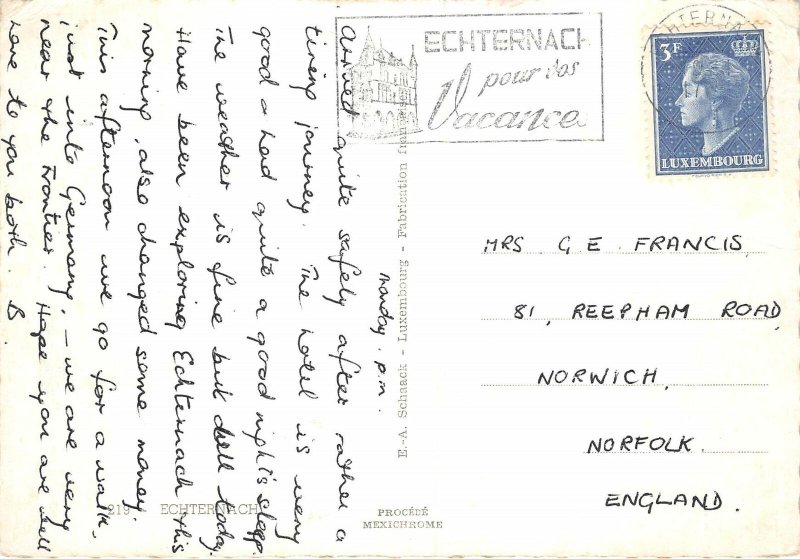 Monday p.m.
Arrived quite safely after rather a
tiring journey. The hotel is very
good & had quite a good night's sleep.
The weather is fine but dull today.
Have been exploring Echternach this
morning, also changed some money.
This afternoon we go for a walk
just into Germany, – we are very
near the Frontier. Hope you are well
Love to you both. B
219 ECHTERNACH
E.-A. Schaack - Luxembourg - Fabrication
PROCÉDÉ
MEXICHROME
ECHTERNACH
pour vos
Vacance
ECHTERNACH
3F
LUXEMBOURG
MRS G E FRANCIS,
81, REEPHAM ROAD
NORWICH,
NORFOLK.
ENGLAND.